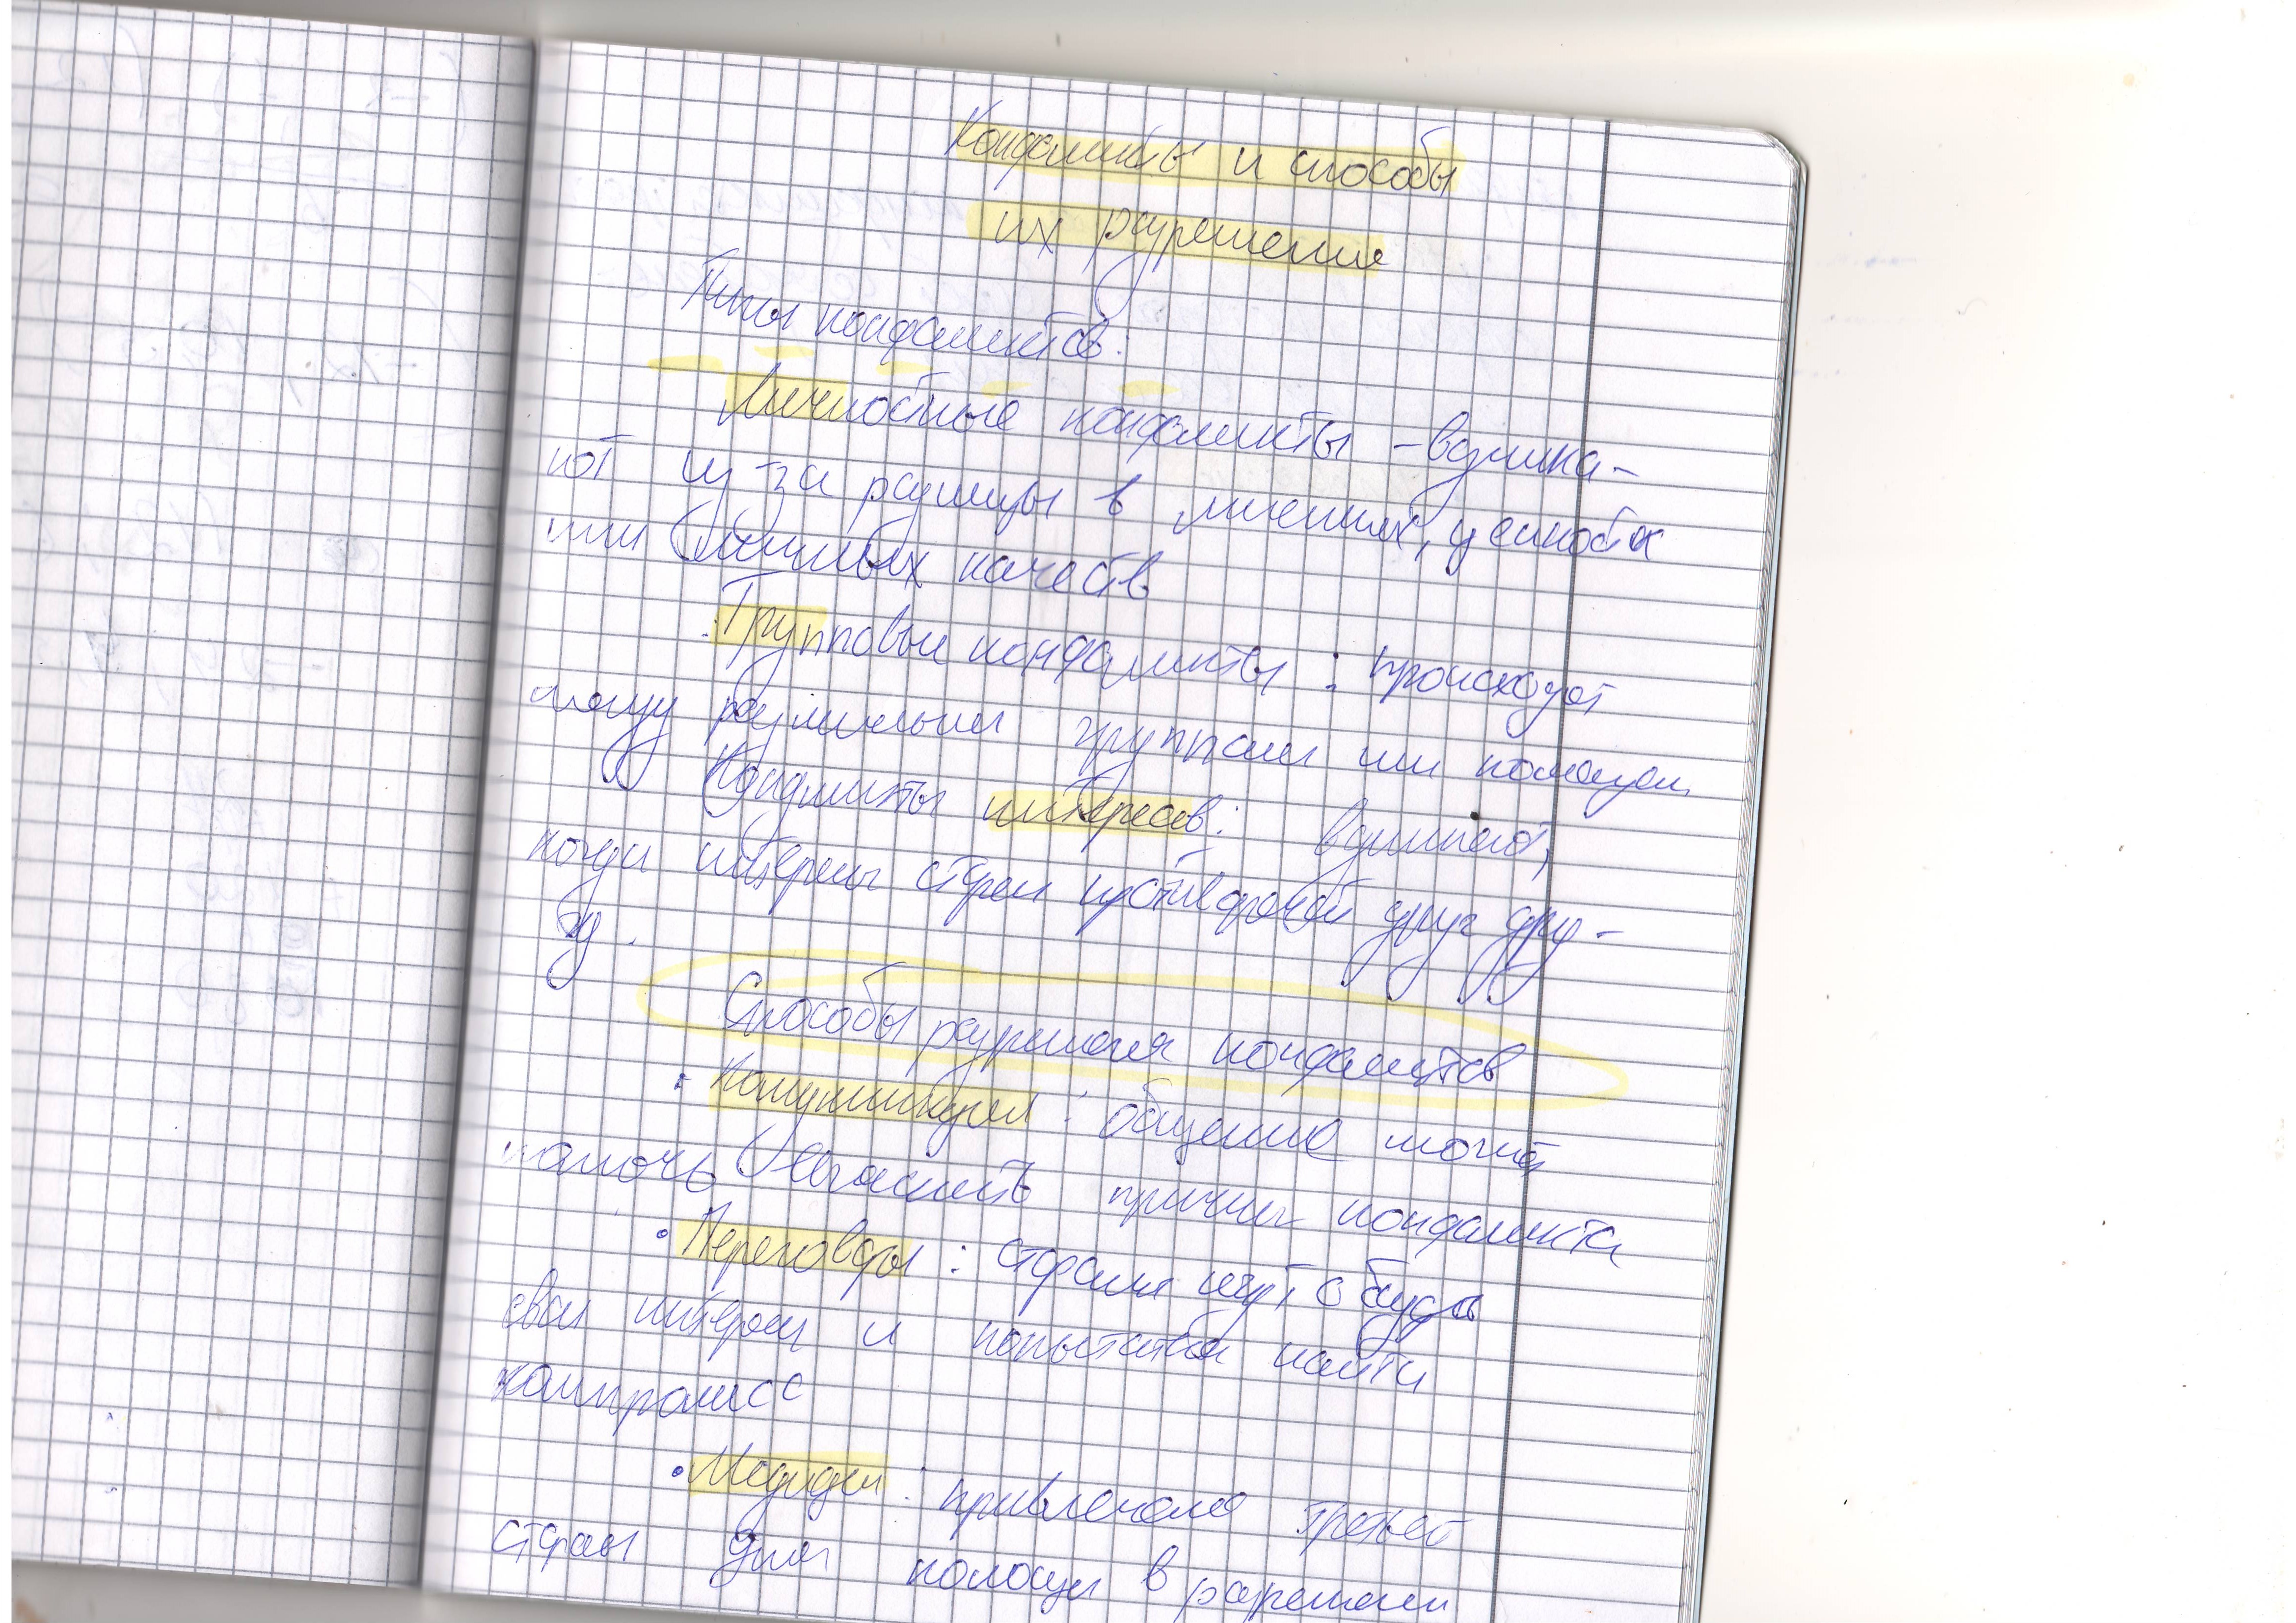 Конфликты и способы
их разрешения
Типы конфликтов:
Личностные конфликты – возника-
ют из-за разницы в мнениях, ценностях
или личных качеств
Групповые конфликты : происходят
между различными группами или командами
Конфликты интересов: возникают,
когда интересы сторон противоречат друг дру-
гу.
Способы разрешения конфликтов
· Коммуникация : общение может
помочь прояснить причины конфликта
· Переговоры : стороны могут обсудить
свои интересы и попытаться найти
компромисс
· Медиация : привлечение третьей
стороны для помощи в разрешении